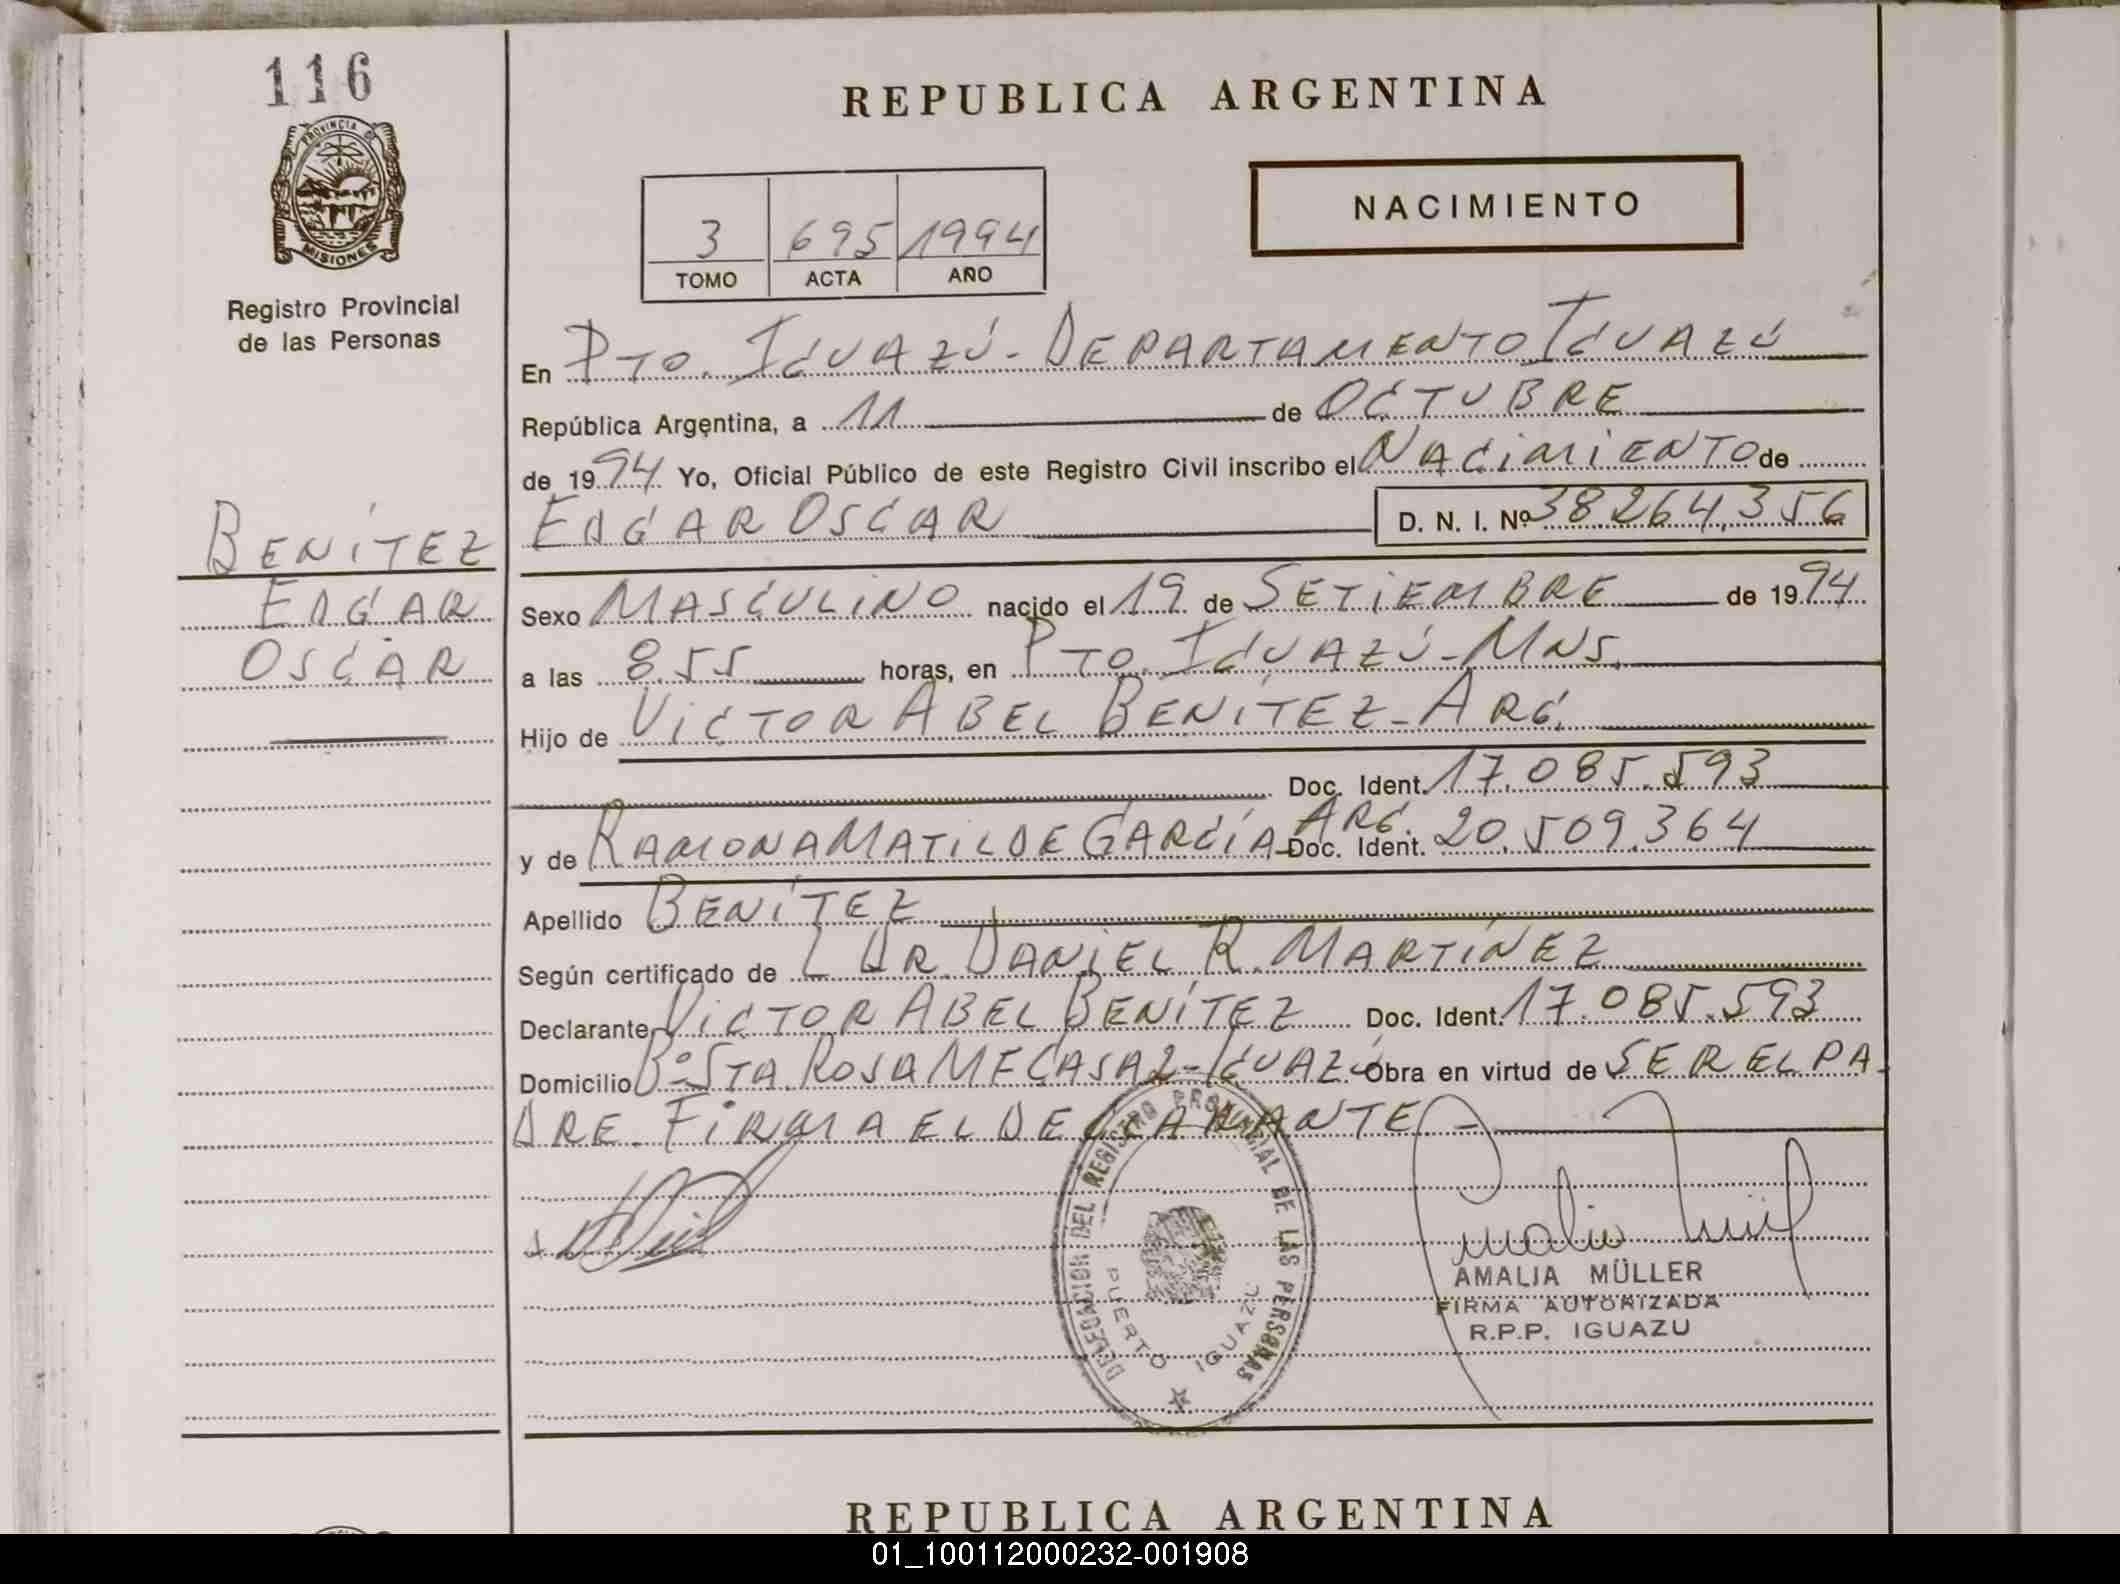 116
PROVINCIA DE
MISIONES
Registro Provincial
de las Personas
BENÍTEZ
EDGAR
OSCAR
REPUBLICA ARGENTINA
NACIMIENTO
3 695 1994
TOMO ACTA AÑO
En PTO. IGUAZÚ - DEPARTAMENTO IGUAZÚ
República Argentina, a 11 de OCTUBRE
de 1994 Yo, Oficial Público de este Registro Civil inscribo el NACIMIENTO de
EDGAR OSCAR D. N. I. Nº 38.264.356
Sexo MASCULINO nacido el 19 de SETIEMBRE de 1994
a las 8.55 horas, en PTO. IGUAZÚ - MNS.
Hijo de VICTOR ABEL BENÍTEZ - ARG.
Doc. Ident. 17.085.593
y de RAMONA MATILDE GARCÍA - ARG. Doc. Ident. 20.509.364
Apellido BENÍTEZ
Según certificado de L DR. DANIEL R. MARTÍNEZ
Declarante VICTOR ABEL BENÍTEZ Doc. Ident. 17.085.593
Domicilio Bº STA. ROSA ME CASA 2 - IGUAZÚ Obra en virtud de SER EL PA-
DRE. FIRMA EL DECLARANTE -
DELEGACION DEL REGISTRO PROVINCIAL DE LAS PERSONAS
PUERTO IGUAZU
AMALIA MÜLLER
FIRMA AUTORIZADA
R.P.P. IGUAZU
REPUBLICA ARGENTINA
01_100112000232-001908